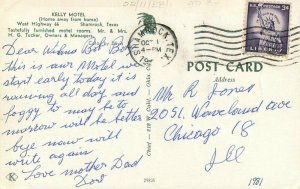 KELLY MOTEL
(Home away from home)
West Highway 66 Shamrock, Texas
Tastefully furnished motel rooms. Mr. & Mrs.
H. G. Tucker, Owners & Managers.
Dear Wilma Ray & Boy
this is our Motel we
start early today it is
raining all day and
foggy to may be to
morrow will be better
bye now will
write again
Love mother Dad
Dov
K
SHAMROCK, TEX.
OCT
4-PM
U.S. POSTAGE
3¢
LIBERTY
POST CARD
Address
Mr R Jones
2051. Waveland ave
Chicago 18
Ill
1981